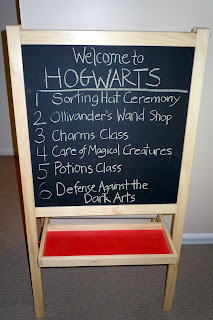 Welcome to
HOGWARTS
1 Sorting Hat Ceremony
2 Ollivander's Wand Shop
3 Charms Class
4 Care of Magical Creatures
5 Potions Class
6 Defense Against the
Dark Arts